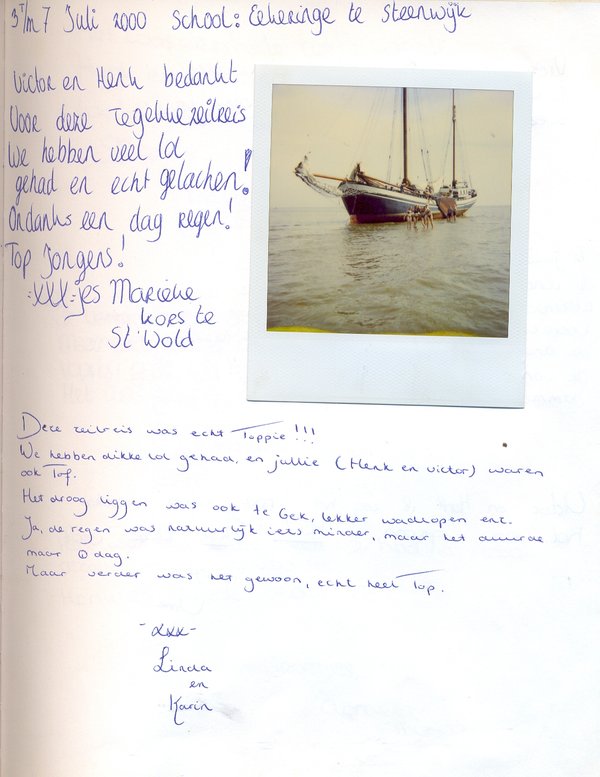 3 t/m 7 Juli 2000 School: Eekeringe te Steenwijk
Victor en Henk bedankt
Voor deze Te gekke zeilreis
We hebben veel lol
gehad en echt gelachen!
Ondanks een dag regen!
Top Jongens!
-XXX-jes Marieke
Kors te
St. Wold
Deze zeilreis was echt Toppie!!!
We hebben dikke lol gehad, en jullie (Henk en Victor) waren
ook Tof.
Het droog liggen was ook te Gek, lekker wadlopen enz.
Ja, de regen was natuurlijk iets minder, maar het duurde
maar 1 dag.
Maar verder was het gewoon, echt heel Top.
-xxx-
Linda
en
Karin